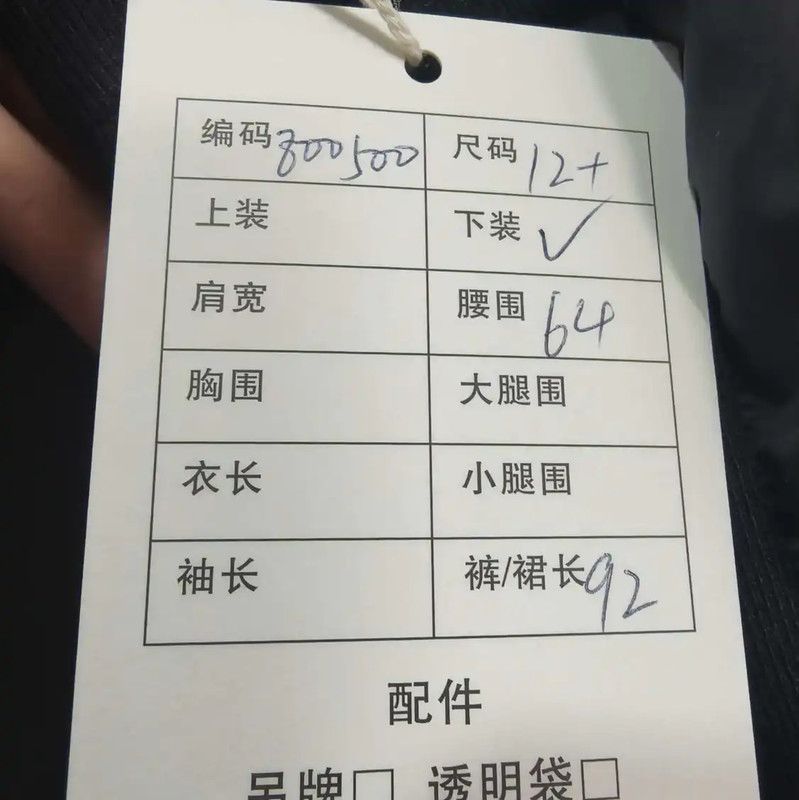 编码 800500 尺码 12+
上装 下装 ✓
肩宽 腰围 64
胸围 大腿围
衣长 小腿围
袖长 裤/裙长 92
配件
吊牌□ 透明袋□